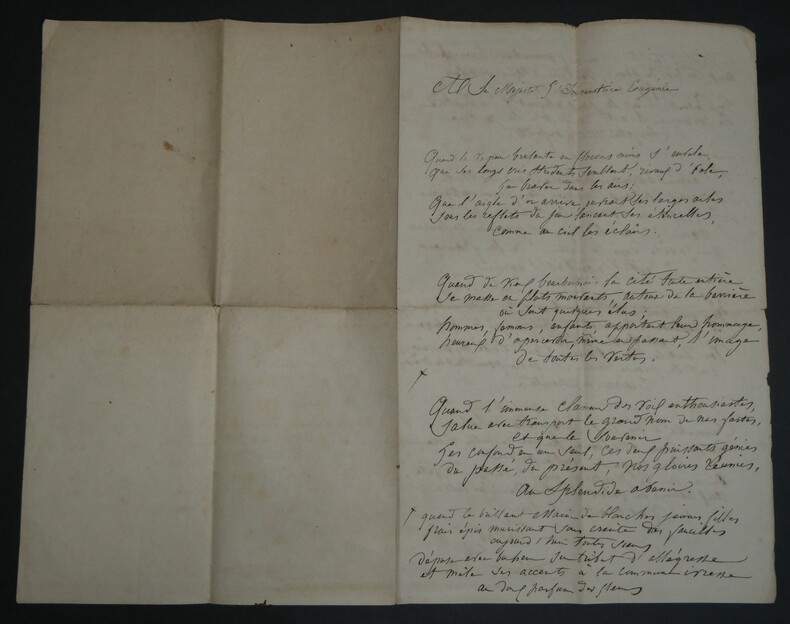 A Sa Majesté l'Impératrice Eugénie
Quand la vapeur brulante en flocons noirs s'exhale
Que ses longs cris stridents semblent, d'
dans les airs;
Que l'aigle d'or arrive, ses larges ailes
Sous les reflets du feu lançant ses étincelles,
comme au ciel les éclairs.
Quand du vieux bourbonnais la cité toute entière
Se masse en flots mouvants, autour de la barrière
où sont quelques élus;
hommes, femmes, enfants, apportent leur hommage,
heureux d'apercevoir, même en passant, l'image
de toutes les vertus.
Quand l'immense clameur des voix enthousiastes,
Salue avec transport le grand nom de nos fastes,
et que le Souvenir
Les confond en un seul, ces deux puissants génies
du passé, du présent, nos gloires réunies,
au Splendide avenir.
quand le brillant essaim de blanches jeunes filles
frais épis murissant sans crainte des faucilles
aujourd'hui toutes
Dépose avec son tribut d'allégresse
et mêle ses accents à la commune ivresse
au doux parfum des fleurs